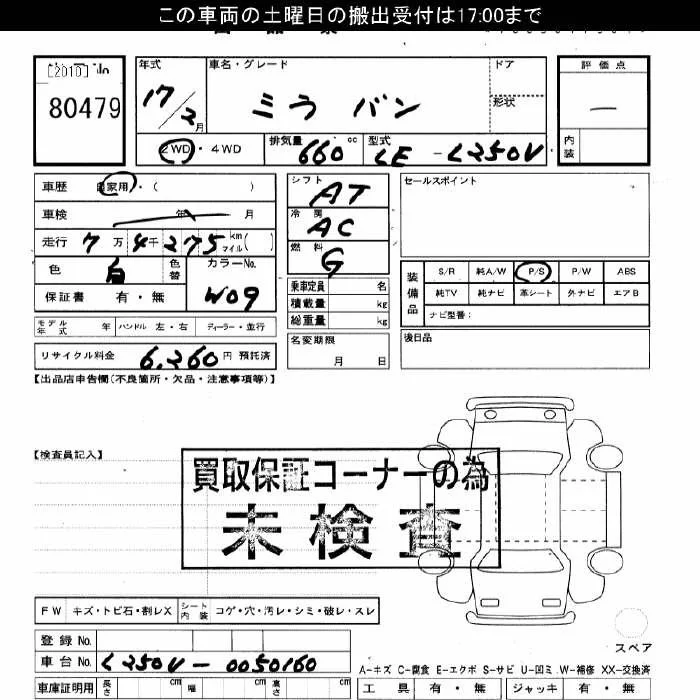 この車両の土曜日の搬出受付は17:00まで
[2010] No
80479
年式 車名・グレード ドア 評価点
17/2月 ミラ バン 形状 —
2WD・4WD 排気量 660 cc 型式 LE-L250V 内装
車歴 自家用・( )
車検 年 月
走行 7万4千275 km マイル( )
色 白 色替 カラーNo. W09
保証書 有・無
シフト AT
冷房 AC
燃料 G
乗車定員 名
積載量 kg
総重量 kg
セールスポイント
装備品 S/R 純A/W P/S P/W ABS
純TV 純ナビ 革シート 外ナビ エアB
ナビ型番:
モデル年式 年 ハンドル 左・右 ディーラー・並行
名変期限 月 日
後日品
リサイクル料金 6,260円 預託済
【出品店申告欄(不良箇所・欠品・注意事項等)】
【検査員記入】
買取保証コーナーの為
未検査
FW キズ・トビ石・割レX シート内装 コゲ・穴・汚レ・シミ・破レ・スレ
スペア
登録No.
車台No. L250V-0050160
A-キズ C-腐食 E-エクボ S-サビ U-凹ミ W-補修 XX-交換済
車庫証明用 長さ cm 幅 cm 高さ cm 工具 有・無 ジャッキ 有・無